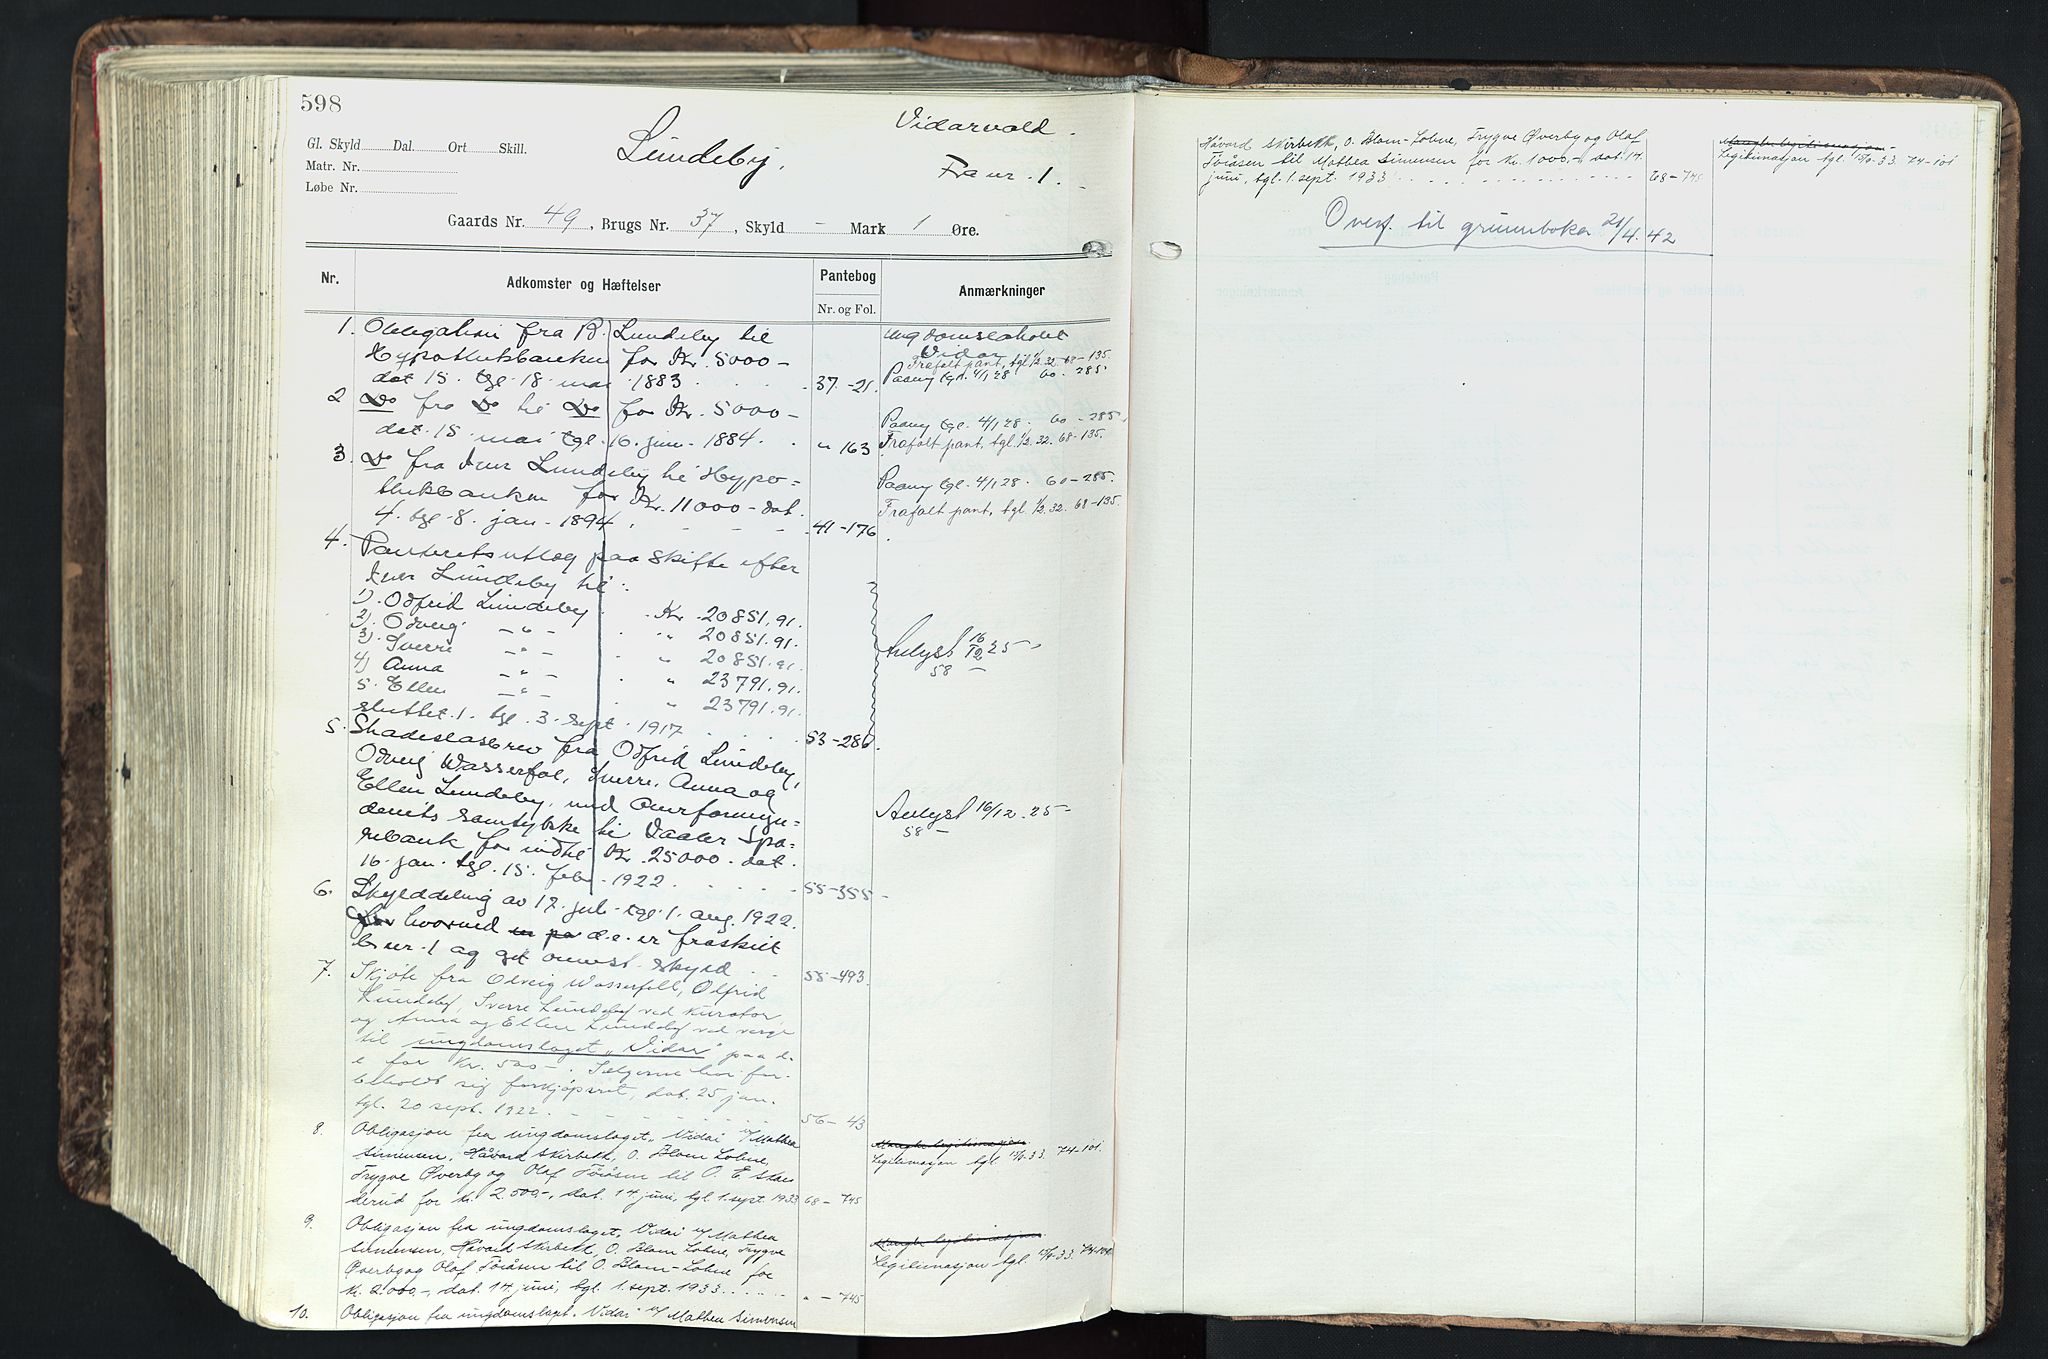 598
Vidarvold.
Gl. Skyld Dal. Ort Skill.
Lundeby.
Matr. Nr.
Fra nr. 1.
Løbe Nr.
Gaards Nr. 49, Brugs Nr. 37, Skyld - Mark 1 Øre.
Nr. Adkomster og Hæftelser Pantebog Anmærkninger
Nr. og Fol.
1. Obligation fra B. Lundeby til
Hypothekbanken for Kr. 5000-
dat 15. tgl. 18. mai 1883 37-21.
Ungdomslaget
Vidar
Frafalt pant, tgl. 1/2.32. 68-135.
Paany tgl. 4/1 28. 60-285
2 Do fra Do til Do for Kr. 5000-
dat. 15. mai tgl. 16. juni 1884. " 163
Paany tgl. 4/1 28. 60-285.
Frafalt pant, tgl. 1/2.32. 68-135.
3. Do fra Iver Lundeby til Hypo=
thekbanken for Kr. 11000- dat.
4. tgl. 8. jan. 1894. 41-176
Paany tgl. 4/1 28. 60-285.
Frafalt pant, tgl. 1/2.32. 68-135.
4. Panteretsutlæg paa skifte efter
Iver Lundeby til:
1). Odfrid Lundeby Kr. 20851.91.
2). Odveig -"- " 20851.91.
3). Sverre -"- " 20851.91.
4) Anna -"- " 23791.91.
5. Ellen -"- " 23791.91.
sluttet 1. tgl. 3. sept. 1917 53-286.
Avlyst 16/12 25
58-
5. Skadeslasbrev fra Odfrid Lundeby,
Odveig Wasserfal, Sverre, Anna og
Ellen Lundeby, med Overformyn=
deriets samtykke til Vaaler Spa=
rebank for indtil Kr. 25000- dat.
16. jan. tgl. 15. febr. 1922. 55-355-
Avlyst 16/12. 25-
58-
6. Skylddeling av 17. juli tgl. 1. aug. 1922.
hvorved d.e. er fraskilt
b.nr. 1 og git ovenst. skyld 55-493.
7. Skjøte fra Odveig Wasserfall, Odfrid
Lundeby, Sverre Lundeby ved kurator
og Anna og Ellen Lundeby ved verge
til ungdomslaget "Vidar" paa d.
e for kr. 500-. Sælgerne har for-
beholdt sig forkjøpsret, dat. 25 jan.
tgl. 20 sept. 1922. 56-43
8. Obligasjon fra ungdomslaget "Vidar" v/Mathea
Simensen, Håvard Skirbekk, O. Blom Lobne,
Trygve Øverby og Olaf Toråsen til O. E. Skas
derud for kr. 2.500,-, dat. 14 juni, tgl. 1. sept. 1933 68-745
Mangler legitimasjon
Legitimasjon tgl. 33. 74-101.
9. Obligasjon fra ungdomslaget Vidar v/Mathea
Simensen, Håvard Skirbekk, O. Blom Lobne, Trygve
Øverby og Olaf Toråsen til O. Blom-Lobne for
kr. 2.000,-, dat. 14. juni, tgl. 1. sept. 1933. " - 745
Mangler legitimasjon
Legitimasjon tgl. 33. 74-101
10. Obligasjon fra ungdomslaget "Vidar" v/ Mathea Simensen
Håvard Skirbekk, O. Blom-Lobne, Trygve Øverby og Olaf
Toråsen til Mathea Simensen for kr. 1000,- dat. 14.
juni, tgl. 1. sept. 1933 68-745
Mangler legitimasjon
Legitimasjon tgl. 33. 74-101
Overf. til grunnboka 21/4.42